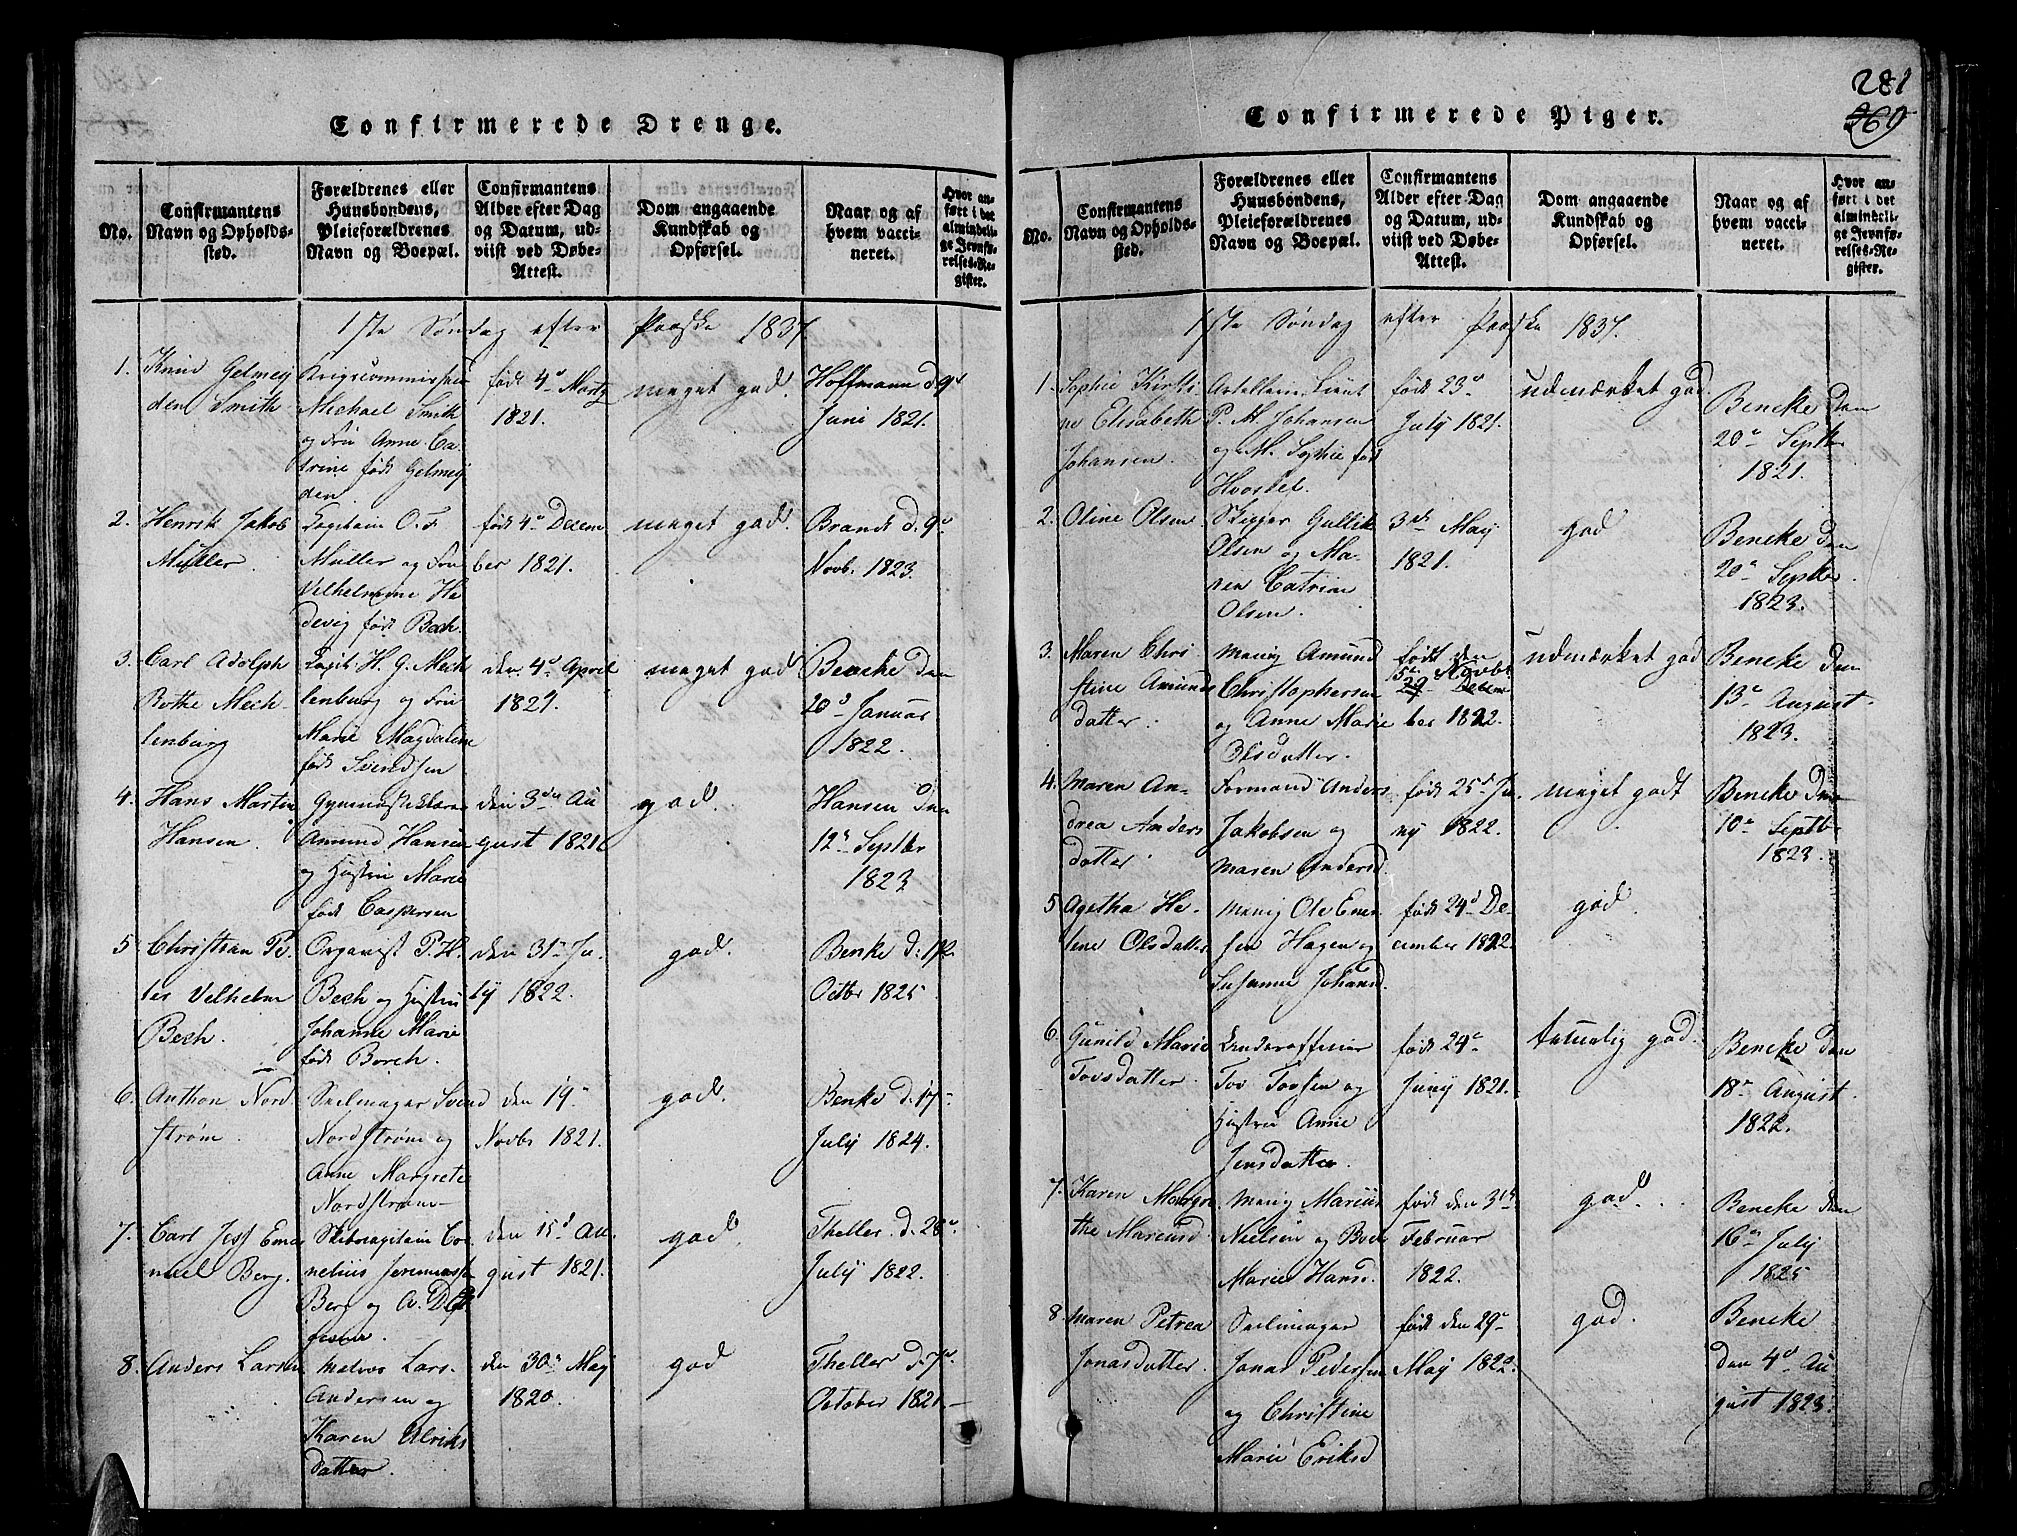 Confirmerede Drenge.
No.
Confirmantens
Navn og Opholds-
sted.
Forældrenes eller
Huusbondens,
Pleieforældrenes
Navn og Boepæl.
Confirmantens
Alder efter Dag
og Datum, ud-
viist ved Døbe-
Attest.
Dom angaaende
Kundskab og
Opførsel.
Naar og af
hvem vacci-
neret.
Hvor an-
ført i det
almindeli-
ge Jevnfø-
relses-Re-
gister.
1ste Søndag efter Paaske 1837.
1. Knud Gelmey
den Smith
Krigscommissair
Michael Smith
og Fru Anne Ca
trine født Gelmey
den.
født 4d Martz
1821.
meget god.
Hoffmann d. 9d
Juni 1821.
2. Henrik Jakob
Müller.
Capitain O. F.
Müller og Fru
Vilhelmine He
devig født Bech.
født 4d Decem
ber 1821.
meget god.
Brandt d. 9d
Novb. 1823.
3. Carl Adolph
Rothe Mech
lenburg
Capit. H. G. Mech
lenburg og Fru
Marie Magdalene
født Svendsen
den 4d April
1821.
meget god
Bencke den
20d Januar
1822.
4. Hans Martin
Hansen.
Amund Hansen
og Hustru Marie
født Caspersen
den 3die Au
gust 1821
god.
Hansen den
12te Septbr
1823
5 Christian Pe
ter Velhelm
Bech.
Organist P. H.
Bech og Hustru
Johanne Marie
født Borch.
den 31te Ju
ly 1822.
god.
Benke d.
Octbr 1825
6. Anthon Nord
strøm.
Seilmager Svend
Nordstrøm og
Anne Margrete
Nordstrøm
den 19
Novbr 1821.
god.
Benke d. 17
July 1824.
7. Carl Jess Ema
nuel Berg.
Skibscapitain Cor
nelius
Berg og
den 15d Au
gust 1821.
god
Theller. d. 28d
July 1822.
8. Anders Larsen
Matros Lars
Andersen og
Karen Ulriks
datter.
den 30te May
1820.
god
Theller d. 7d
October 1821.
281
269
Confirmerede Piger.
No.
Confirmantens
Navn og Opholds-
sted.
Forældrenes eller
Huusbondens,
Pleieforældrenes
Navn og Boepæl.
Confirmantens
Alder efter Dag
og Datum, ud-
viist ved Døbe-
Attest.
Dom angaaende
Kundskab og
Opførsel.
Naar og af
hvem vacci-
neret.
Hvor an-
ført i det
almindeli-
ge Jevnfø-
relses-Re-
gister.
1ste Søndag efter Paaske 1837.
1. Sophie Kirsti-
ne Elisabeth
Johansen.
Artelleri Lieut
P. M. Johansen
og M. Sophie født
født 23d
July 1821.
udmærket god
Bencke den
20d Septbr
1821.
2. Oline Olsen
Skipper Gullik
Olsen og Ma-
ren Catrine
Olsen.
3die May
1821.
god
Bencke den
20d Septbr.
1823.
3. Maren Chri
stine Amunds
datter.
Menig Amund
Christophersen
og Anne Marie
Olsdatter.
født den
5te Novbr
29 Decem
ber 1822.
udmærket god
Bencke den
13d August
1823.
4. Maren An-
drea Anders
datter.
Formand Anders
Jakobsen og
Maren Andersd
født 25d Ju
ny 1822.
meget godt
Bencke den
10d Septbr
1823.
5 Agatha He-
lene Olsdatter
Menig Ole Ener
sen Hagen og
Susanne Johansd.
født 24d De-
cember 1822.
god.
6. Gunild Marie
Tovsdatter.
Underofficier
Tov Tovsen og
Hustru Anne
Jensdatter.
født 24d
Juny 1821.
temmelig god.
Bencke den
18d August
1822.
7. Karen Margre
the Marcusd
Menig Marcus
Nielsen og
Marie Hansd.
født den 3die
Februar
1822.
god.
Bencke den
16d July
1825
8. Maren Petrea
Jonasdatter.
Seilmager
Jonas Pedersen
og Christine
Marie Eriksd
født den 29d
May 1822
god.
Bencke
den 4d Au
gust 1823.